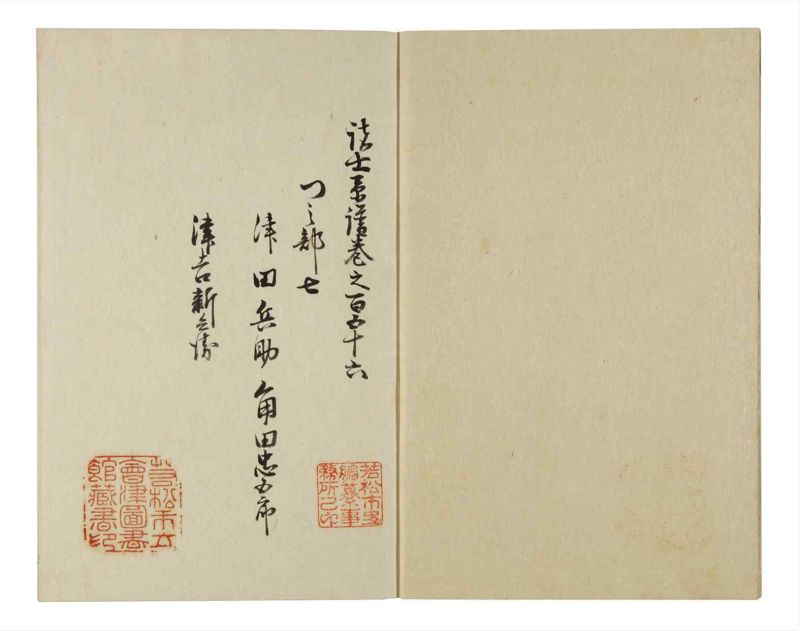 諸士系譜巻之百五十六
つ之部七
津田兵助 角田忠五郎
津吉新兵衛
若松市史
編纂事
務所之印
若松市立
會津圖書
館藏書印